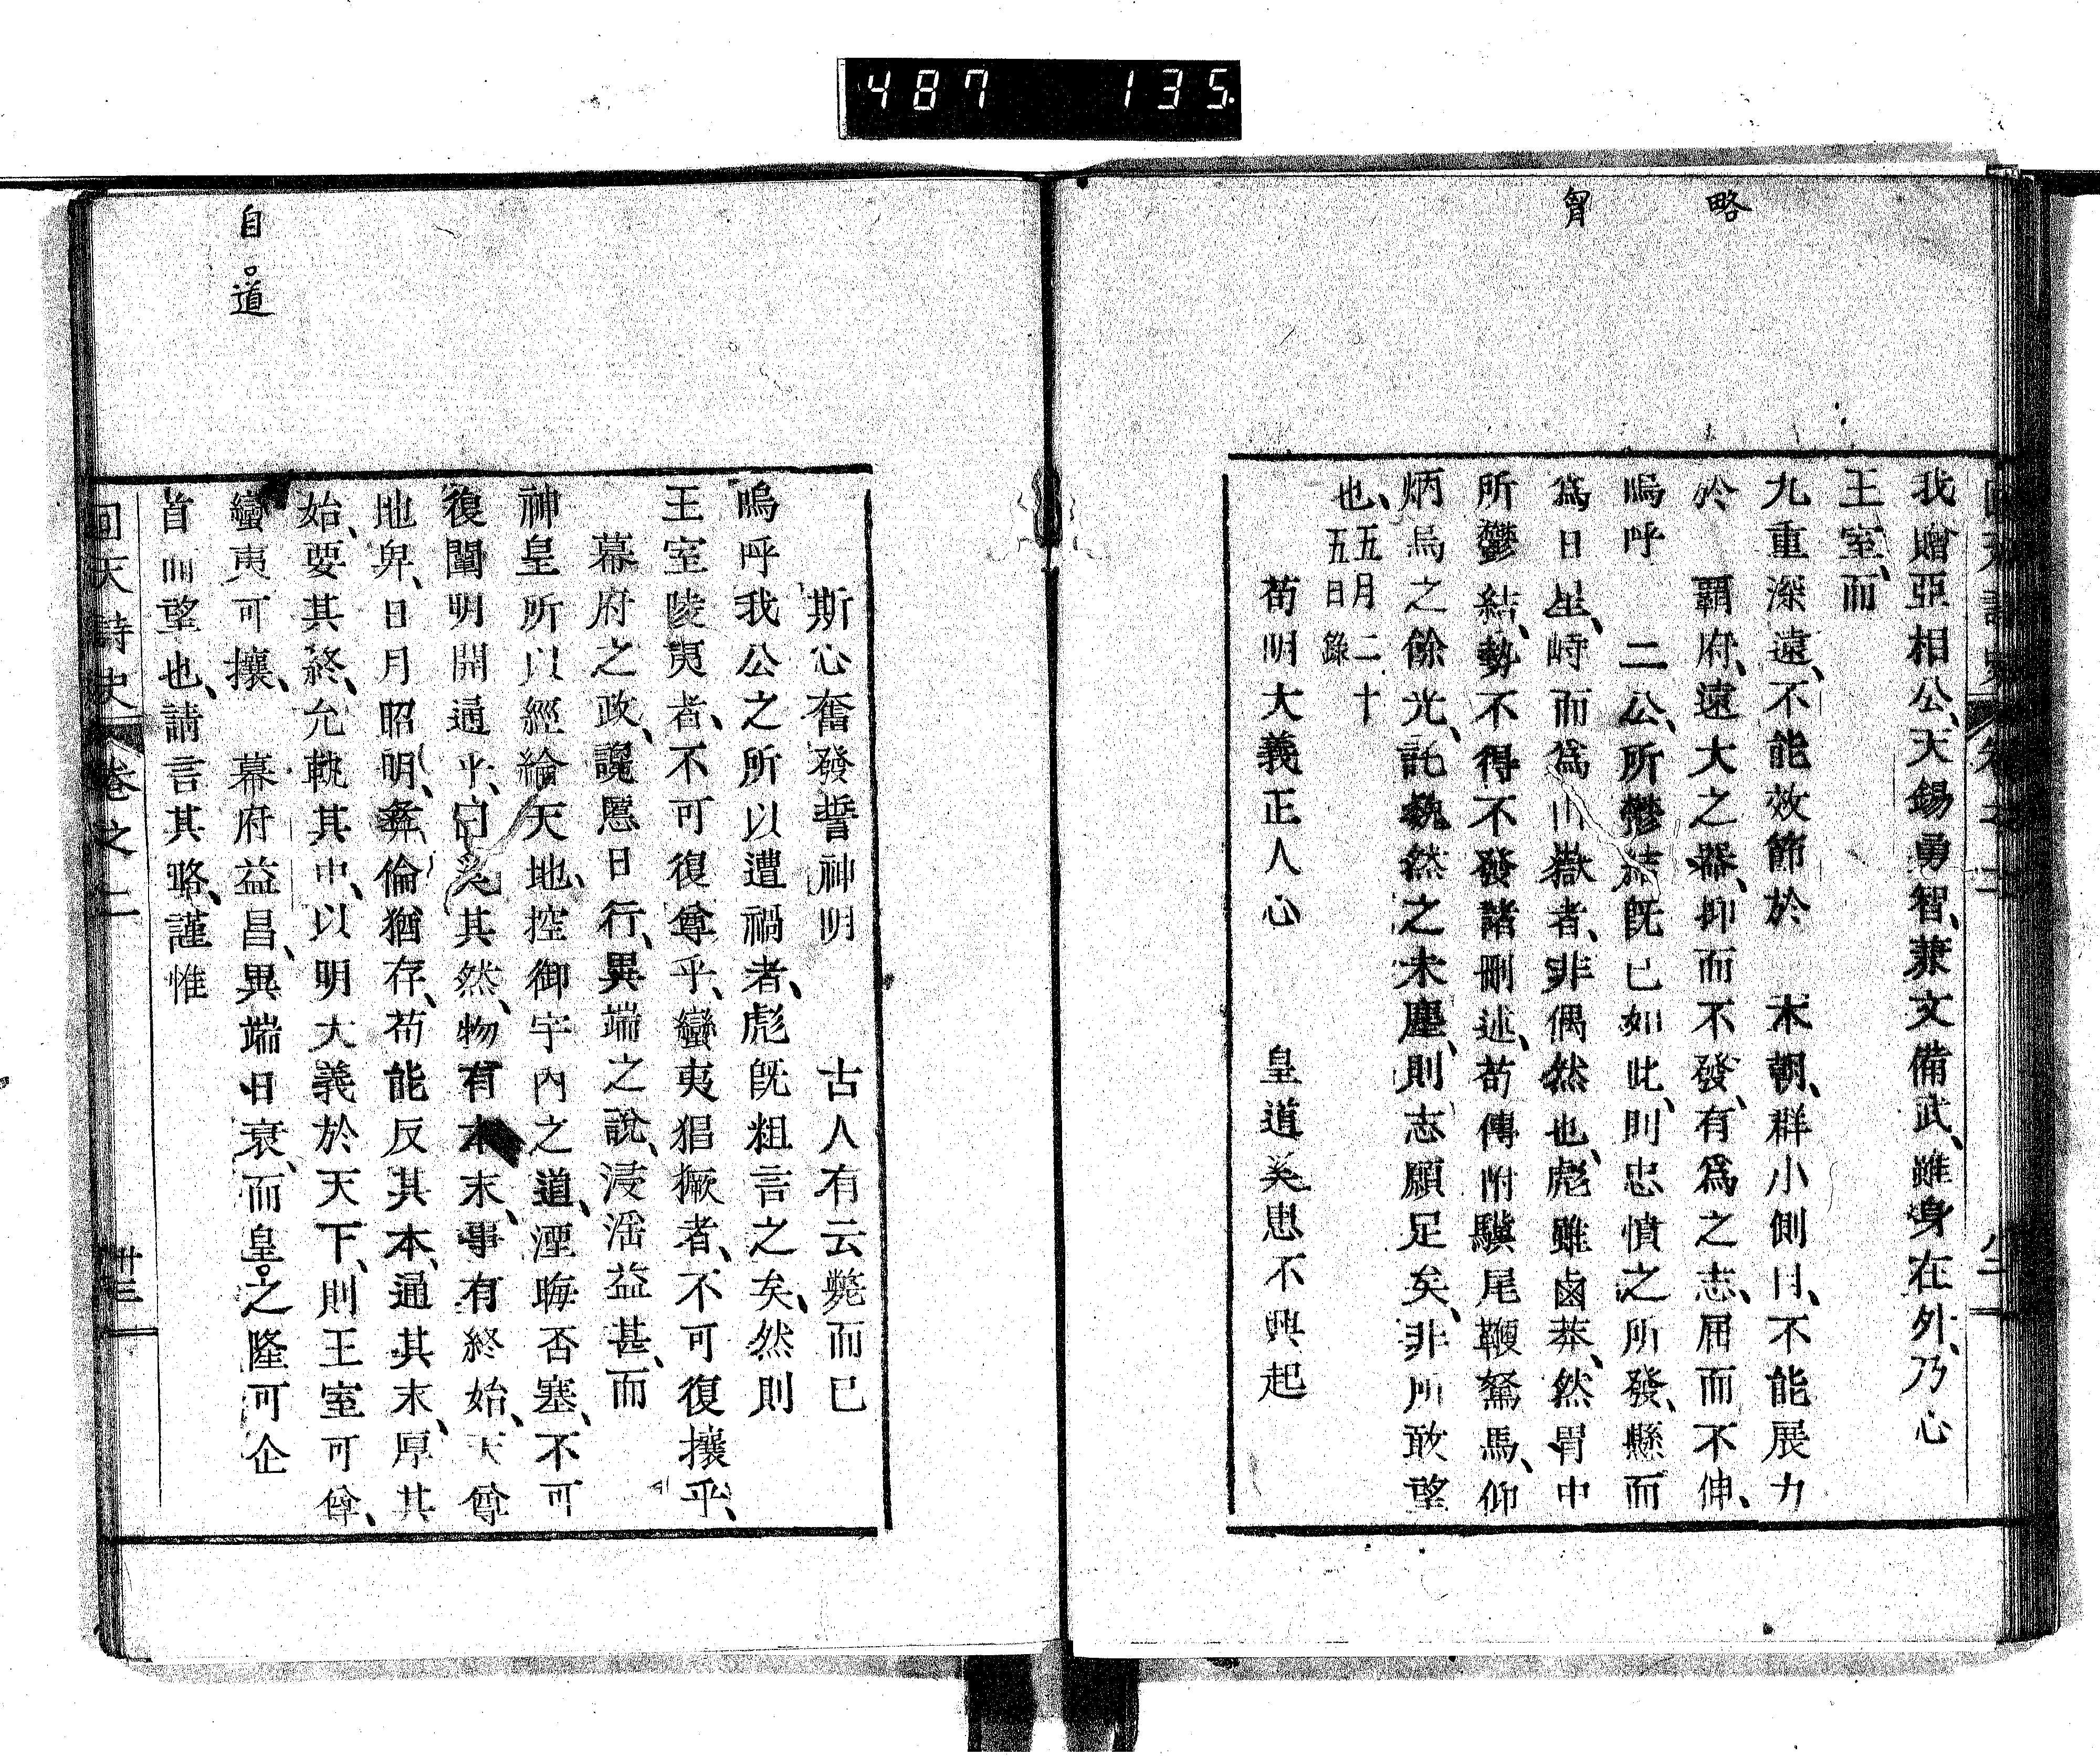 487 135
略
胷
我贈亞相公、天錫勇智、兼文備武、雖身在外、乃心
王室、而
九重深遠、不能效節於 本朝、群小側目、不能展力
於 覇府、遠大之器、仰而不發、有爲之志、屈而不伸、
嗚呼 二公、所鬱結既已如此、則忠憤之所發、懸而
爲日星、峙而爲山嶽者、非偶然也、彪雖鹵莽、然胃中
所鬱結、勢不得不發諸刪述、苟傳附驥尾鞭駑馬、仰
炳焉之餘光、託巍然之末塵、則志願足矣、非所敢望
也、五月二十
五日錄
苟明大義正人心 皇道奚患不興起
自。道
斯心奮發誓神明 古人有云斃而已
嗚呼我公之所以遭禍者、彪既粗言之矣、然則
王室陵夷者、不可復尊乎、蠻夷猖獗者、不可復攘乎、
幕府之政、讒慝日行、異端之說、浸淫益甚、而
神皇所以經綸天地、控御宇內之道、湮晦否塞、不可
復闡明開通乎、曰奚其然、物有本末、事有終始、天尊
地卑、日月昭明、彝倫猶存、苟能反其本、通其末、原其
始、要其終、允執其中、以明大義於天下、則王室可尊、
蠻夷可攘、 幕府益昌、異端日衰、而皇。之隆可企
首而望也、請言其略、謹惟
回天詩史 卷之二 卅三